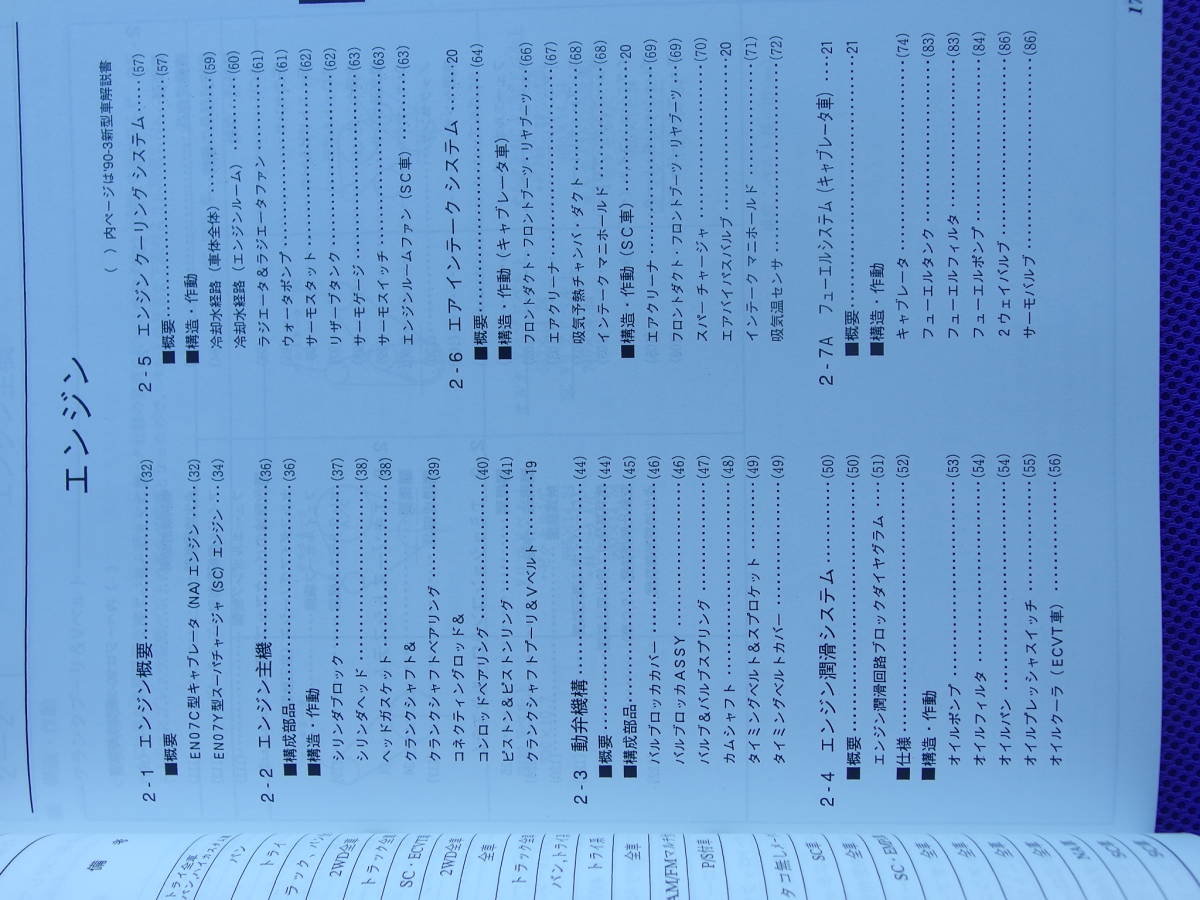 エンジン
( )内ページは'90-3新型車解説書
2-1 エンジン概要……………………(32)
■概要
EN07C型キャブレータ(NA)エンジン………(32)
EN07Y型スーパチャージャ(SC)エンジン…(34)
2-2 エンジン主機……………………(36)
■構成部品……………………(36)
■構造・作動
シリンダブロック……………………(37)
シリンダヘッド……………………(38)
ヘッドガスケット……………………(38)
クランクシャフト&
クランクシャフトベアリング……………………(39)
コネクティングロッド&
コンロッドベアリング……………………(40)
ピストン&ピストンリング……………………(41)
クランクシャフトプーリ&Vベルト……………19
2-3 動弁機構……………………(44)
■概要……………………(44)
■構成部品……………………(45)
バルブロッカカバー……………………(46)
バルブロッカASSY……………………(46)
バルブ&バルブスプリング……………………(47)
カムシャフト……………………(48)
タイミングベルト&スプロケット……………(49)
タイミングベルトカバー……………………(49)
2-4 エンジン潤滑システム……………(50)
■概要……………………(50)
エンジン潤滑回路ブロックダイヤグラム……(51)
■仕様……………………(52)
■構造・作動
オイルポンプ……………………(53)
オイルフィルタ……………………(54)
オイルパン……………………(54)
オイルプレッシャスイッチ……………………(55)
オイルクーラ(ECVT車)……………………(56)
2-5 エンジン クーリング システム……(57)
■概要……………………(57)
■構造・作動
冷却水経路(車体全体)……………………(59)
冷却水経路(エンジンルーム)……………(60)
ラジエータ&ラジエータファン……………(61)
ウォータポンプ……………………(61)
サーモスタット……………………(62)
リザーブタンク……………………(62)
サーモゲージ……………………(63)
サーモスイッチ……………………(63)
エンジンルームファン(SC車)……………(63)
2-6 エア インテーク システム………20
■概要……………………(64)
■構造・作動(キャブレータ車)
フロントダクト・フロントブーツ・リヤブーツ…(66)
エアクリーナ……………………(67)
吸気予熱チャンバ・ダクト……………………(68)
インテーク マニホールド……………………(68)
■構造・作動(SC車)……………………20
エアクリーナ……………………(69)
フロントダクト・フロントブーツ・リヤブーツ…(69)
スパーチャージャ……………………(70)
エアバイパスバルブ……………………20
インテーク マニホールド……………………(71)
吸気温センサ……………………(72)
2-7A フューエルシステム(キャブレータ車)…21
■概要……………………21
■構造・作動
キャブレータ……………………(74)
フューエルタンク……………………(83)
フューエルフィルタ……………………(83)
フューエルポンプ……………………(84)
2ウェイバルブ……………………(86)
サーモバルブ……………………(86)
17
備 考
トライ全車
バン
トライ
2WD全車
トラック全車
SC・ECVT車
2WD全車
全車
トラック全車
トライ系
全車
P/S付車
SC車
全車
全車
全車
全車
全車
全車